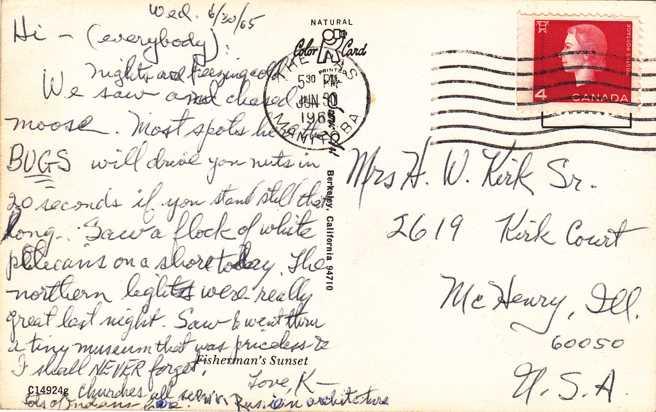 Wed. 6/30/65
Hi - (everybody):
nights are freezing cold
We saw and chased
moose. Most spots he
BUGS will drive you nuts in
20 seconds if you stand still that
long. Saw a flock of white
pelicans on a shore today. The
northern lights were really
great last night. Saw & went thru
a tiny museum that was priceless &
I shall NEVER forget.
Love, K-
churches all
lots of Indians Russian architecture
Fisherman's Sunset
C14924g
NATURAL
Color Card
THE PAS
5 30 PM
JUN 30
1965
MANITOBA
Berkeley, California 94710
4 CANADA
Mrs H. W. Kirk Sr.
2619 Kirk Court
McHenry, Ill.
60050
U.S.A.